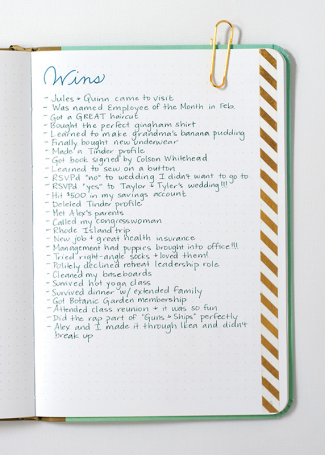 Wins
- Jules + Quinn came to visit
- Was named Employee of the Month in Feb.
- Got a GREAT haircut
- Bought the perfect gingham shirt
- Learned to make grandma's banana pudding
- Finally bought new underwear
- Made a Tinder profile
- Got book signed by Colson Whitehead
- Learned to sew on a button
- RSVPd "no" to wedding I didn't want to go to
- RSVPd "yes" to Taylor + Tyler's wedding!!!
- Hit $500 in my savings account
- Deleted Tinder profile
- Met Alex's parents
- Called my congresswoman
- Rhode Island trip
- New job + great health insurance
- Management had puppies brought into office!!!
- Tried right-angle socks + loved them!
- Politely declined retreat leadership role
- Cleaned my baseboards
- Survived hot yoga class
- Survived dinner w/ extended family
- Got Botanic Garden membership
- Attended class reunion + it was so fun
- Did the rap part of "Guns + Ships" perfectly
- Alex and I made it through Ikea and didn't
break up